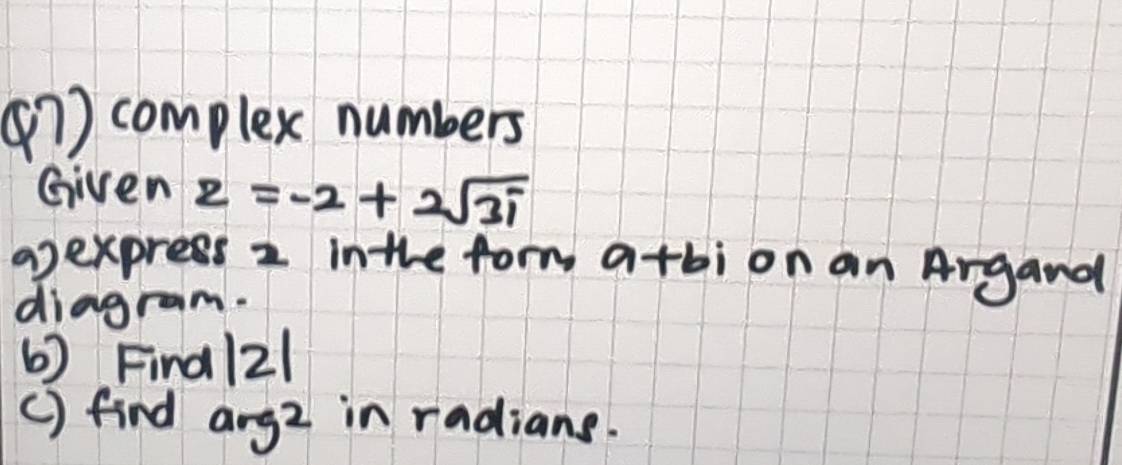 Q7) complex numbers
Given z = -2 + 2√3i
a) express z in the form a+bi on an Argand
diagram.
b) Find |z|
c) find arg z in radians.